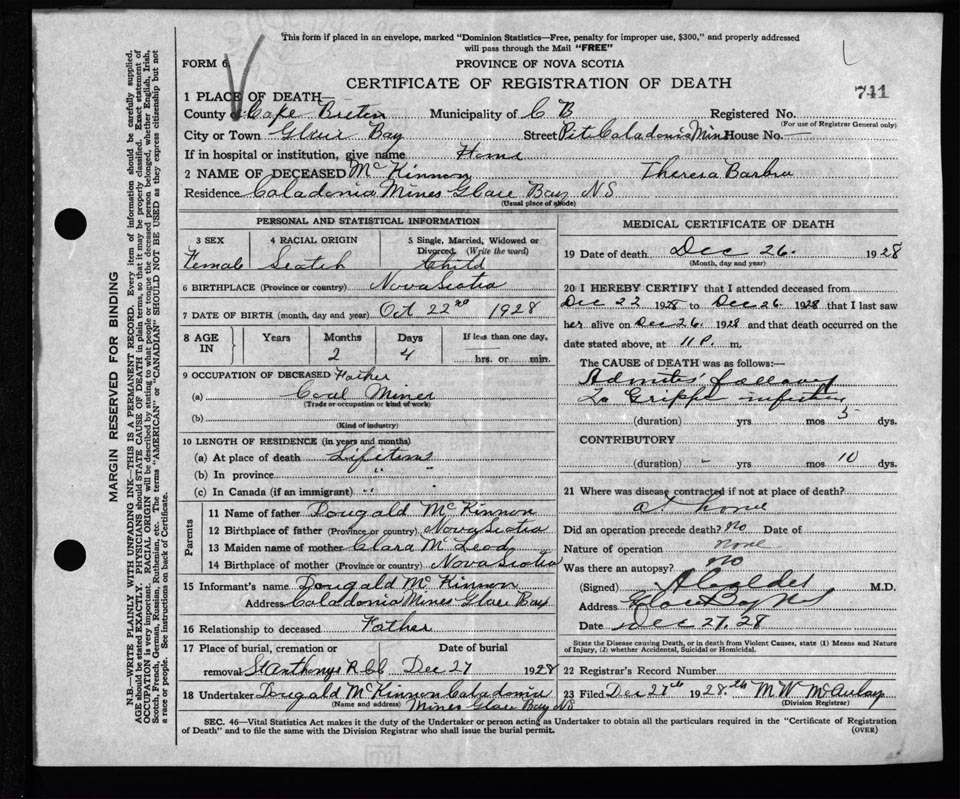 This form if placed in an envelope, marked "Dominion Statistics—Free, penalty for improper use, $300," and properly addressed
will pass through the Mail "FREE"
FORM 6
PROVINCE OF NOVA SCOTIA
CERTIFICATE OF REGISTRATION OF DEATH
741
1 PLACE OF DEATH—
County of Cape Breton Municipality of C B Registered No.
(For use of Registrar General only)
City or Town Glace Bay Street Pit Caladonia Mines House No. —
If in hospital or institution, give name Home
2 NAME OF DECEASED McKinnon Theresa Barbra
Residence Caladonia Mines Glace Bay N S
(Usual place of abode)
PERSONAL AND STATISTICAL INFORMATION
3 SEX 4 RACIAL ORIGIN 5 Single, Married, Widowed or
Divorced (Write the word)
Female Scotch Child
6 BIRTHPLACE (Province or country) Nova Scotia
7 DATE OF BIRTH (month, day and year) Oct 22nd 1928
8 AGE IN Years Months Days If less than one day,
2 4 hrs. or min.
9 OCCUPATION OF DECEASED Father
(a) Coal Miner
(Trade or occupation or kind of work)
(b)
(Kind of industry)
10 LENGTH OF RESIDENCE (in years and months)
(a) At place of death Lifetime
(b) In province " "
(c) In Canada (if an immigrant) " "
Parents
11 Name of father Dougald McKinnon
12 Birthplace of father (Province or country) Nova Scotia
13 Maiden name of mother Clara McLeod
14 Birthplace of mother (Province or country) Nova Scotia
15 Informant's name Dougald McKinnon
Address Caladonia Mines Glace Bay
16 Relationship to deceased Father
17 Place of burial, cremation or Date of burial
removal St Anthonys Dec 27 1928
18 Undertaker Dougald McKinnon Caladonia
(Name and address) Mines Glace Bay NS
MEDICAL CERTIFICATE OF DEATH
19 Date of death Dec 26. 1928
(Month, day and year)
20 I HEREBY CERTIFY that I attended deceased from
Dec 22 1928 to Dec 26 1928 that I last saw
her alive on Dec 26 1928 and that death occurred on the
date stated above, at 11 P. m.
The CAUSE of DEATH was as follows:—
La Grippe
5
(duration) yrs mos dys.
CONTRIBUTORY
10
(duration) yrs mos dys.
21 Where was disease contracted if not at place of death?
at home
Did an operation precede death? No Date of
Nature of operation none
Was there an autopsy? No
(Signed) M.D.
Address Glace Bay NS
Date Dec 27. 28
State the Disease causing Death, or in death from Violent Causes, state (1) Means and Nature
of Injury, (2) whether Accidental, Suicidal or Homicidal.
22 Registrar's Record Number
23 Filed Dec 27th 1928. M W McAulay
(Division Registrar)
SEC. 46—Vital Statistics Act makes it the duty of the Undertaker or person acting as Undertaker to obtain all the particulars required in the "Certificate of Registration
of Death" and to file the same with the Division Registrar who shall issue the burial permit.
(OVER)
MARGIN RESERVED FOR BINDING
N.B.—WRITE PLAINLY WITH UNFADING INK—THIS IS A PERMANENT RECORD. Every item of information should be carefully supplied.
AGE should be stated EXACTLY. PHYSICIANS should STATE CAUSE OF DEATH in plain terms, so that it may be properly classified. Exact statement of
OCCUPATION is very important. RACIAL ORIGIN will be described by stating to what people or tongue the deceased person belonged, whether English, Irish,
Scotch, French, German, Russian, Ruthenian, etc. The terms "AMERICAN" or "CANADIAN" SHOULD NOT BE USED as they express citizenship but not
a race or people. See instructions on back of Certificate.